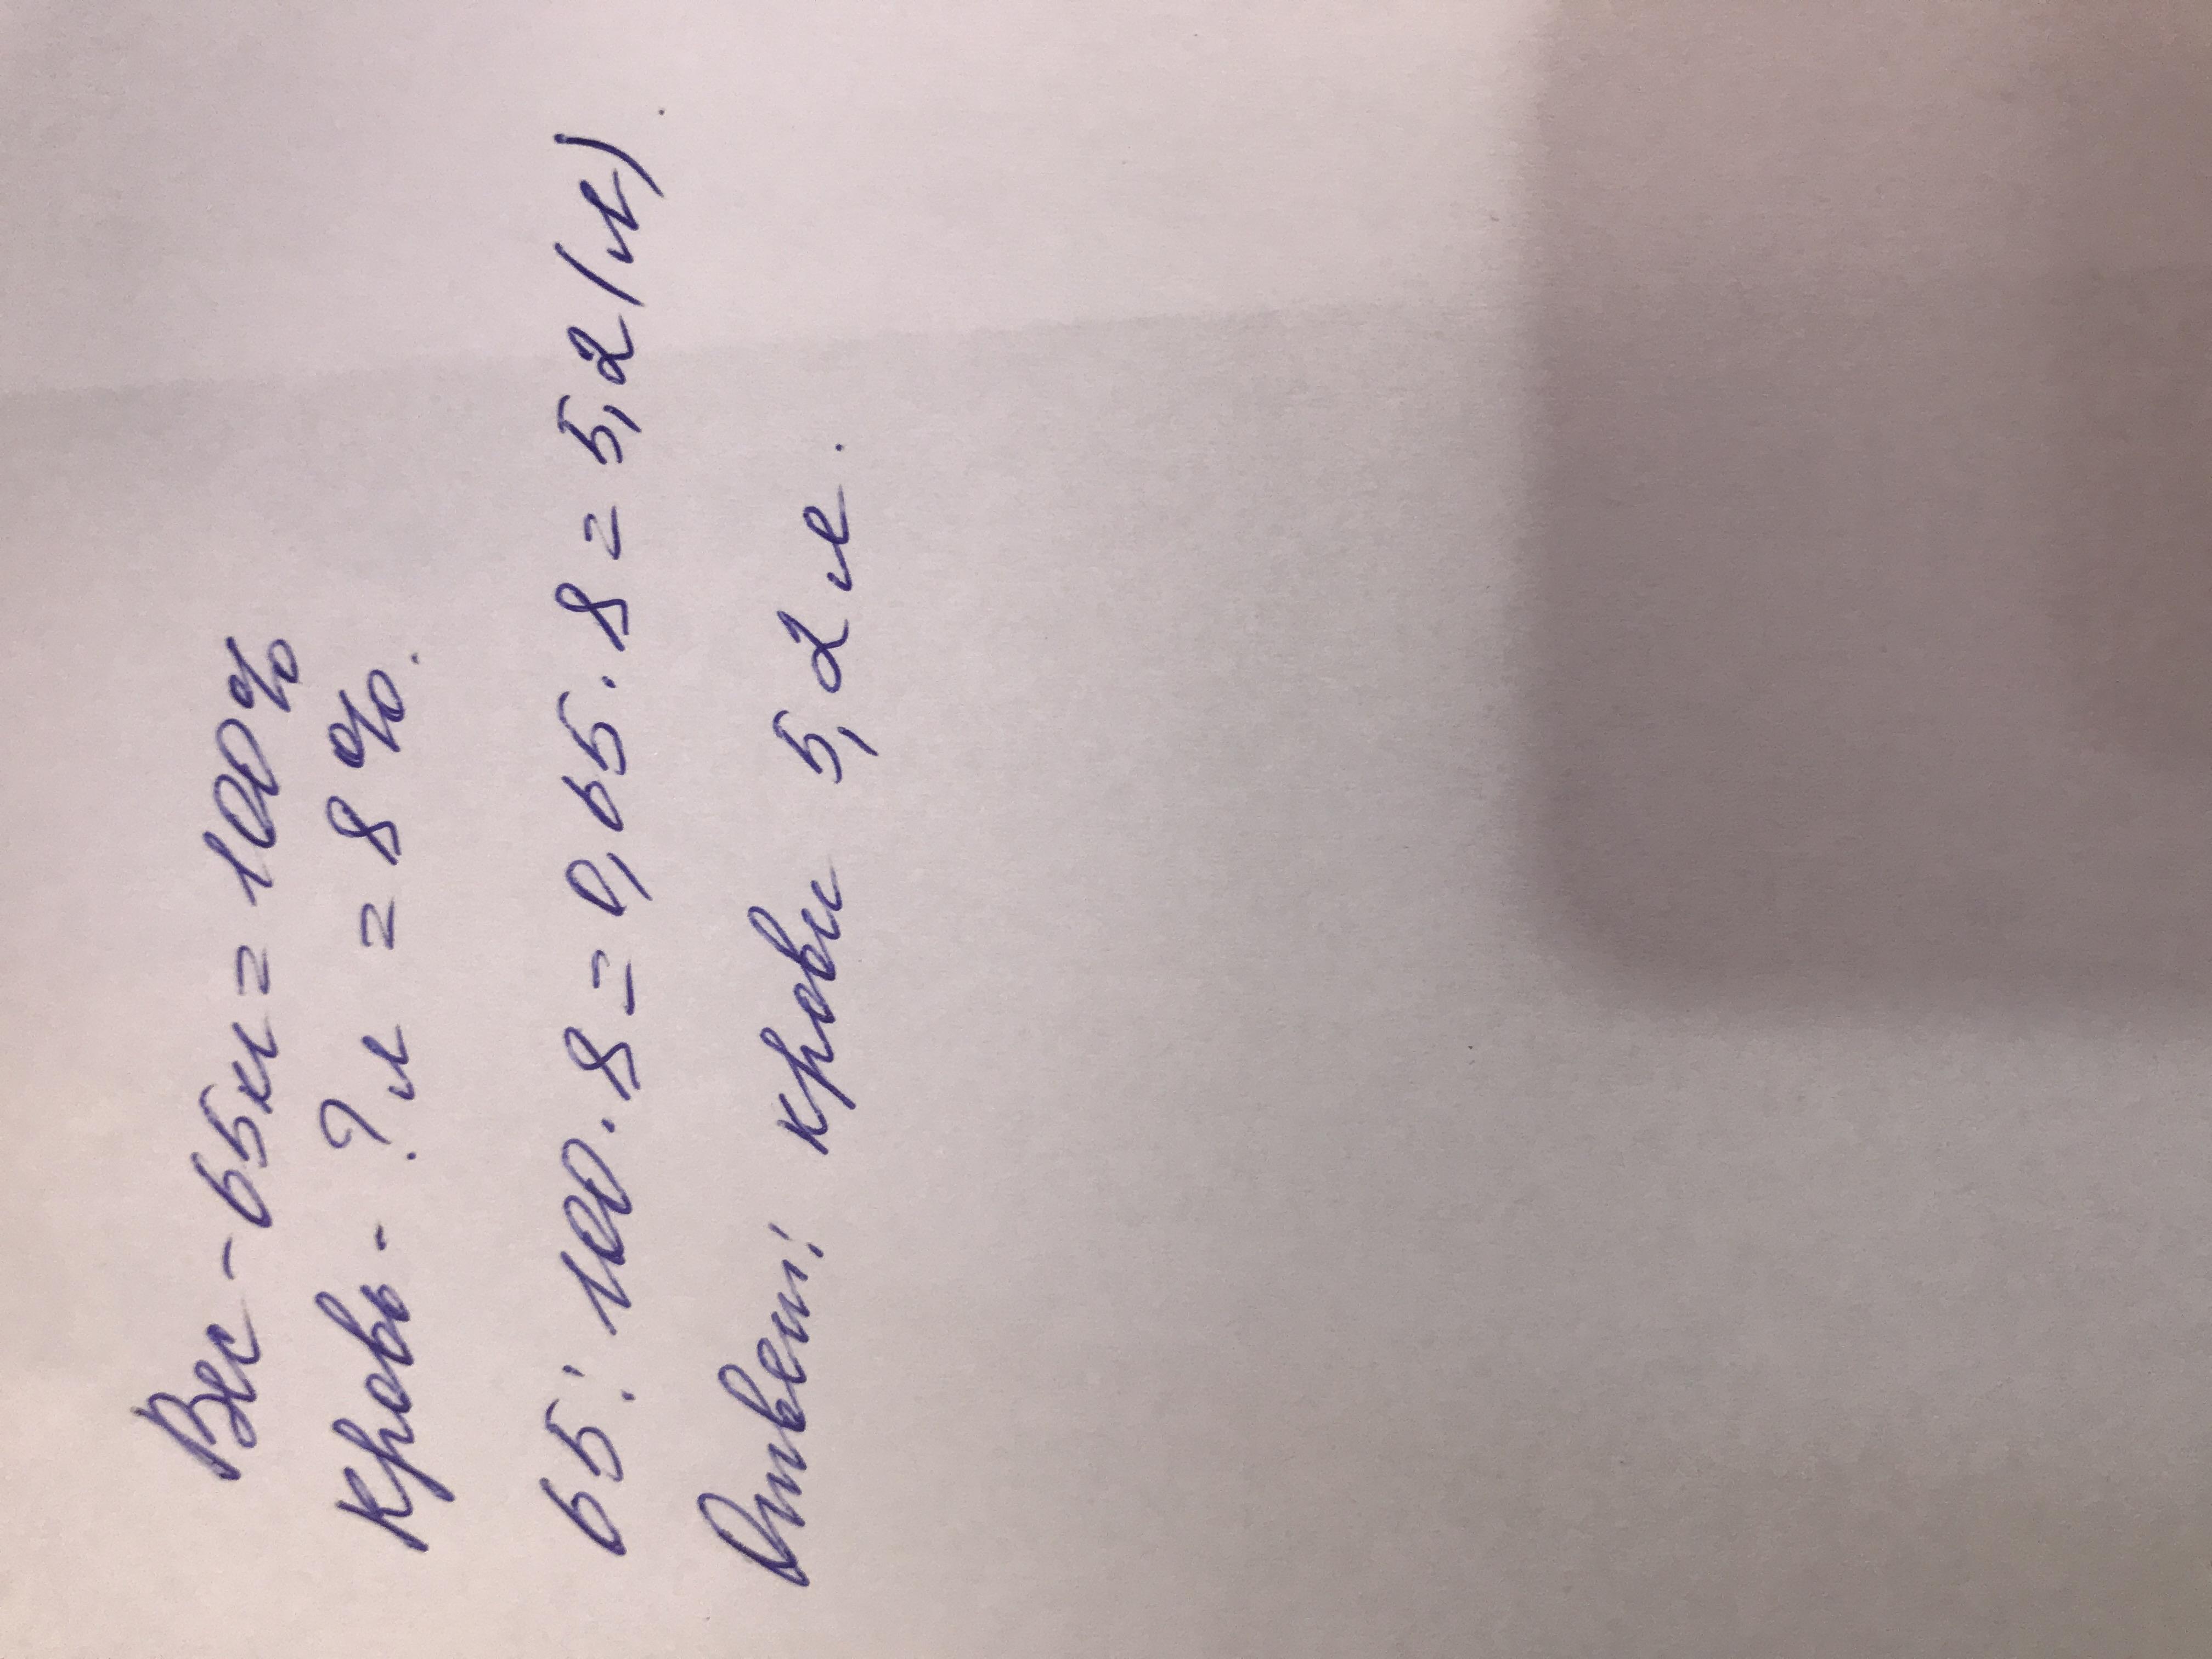 Вес - 65кг = 100%
Кровь - ? л = 8%.
65 : 100 . 8 = 0,65 . 8 = 5,2 (л).
Ответ: крови 5,2 л.